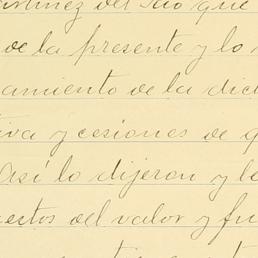 artinez del Rio que
de la presente y lo
amiento de la dic
iva y cesiones de q
Así lo dijeron y lo
estos del valor y fu